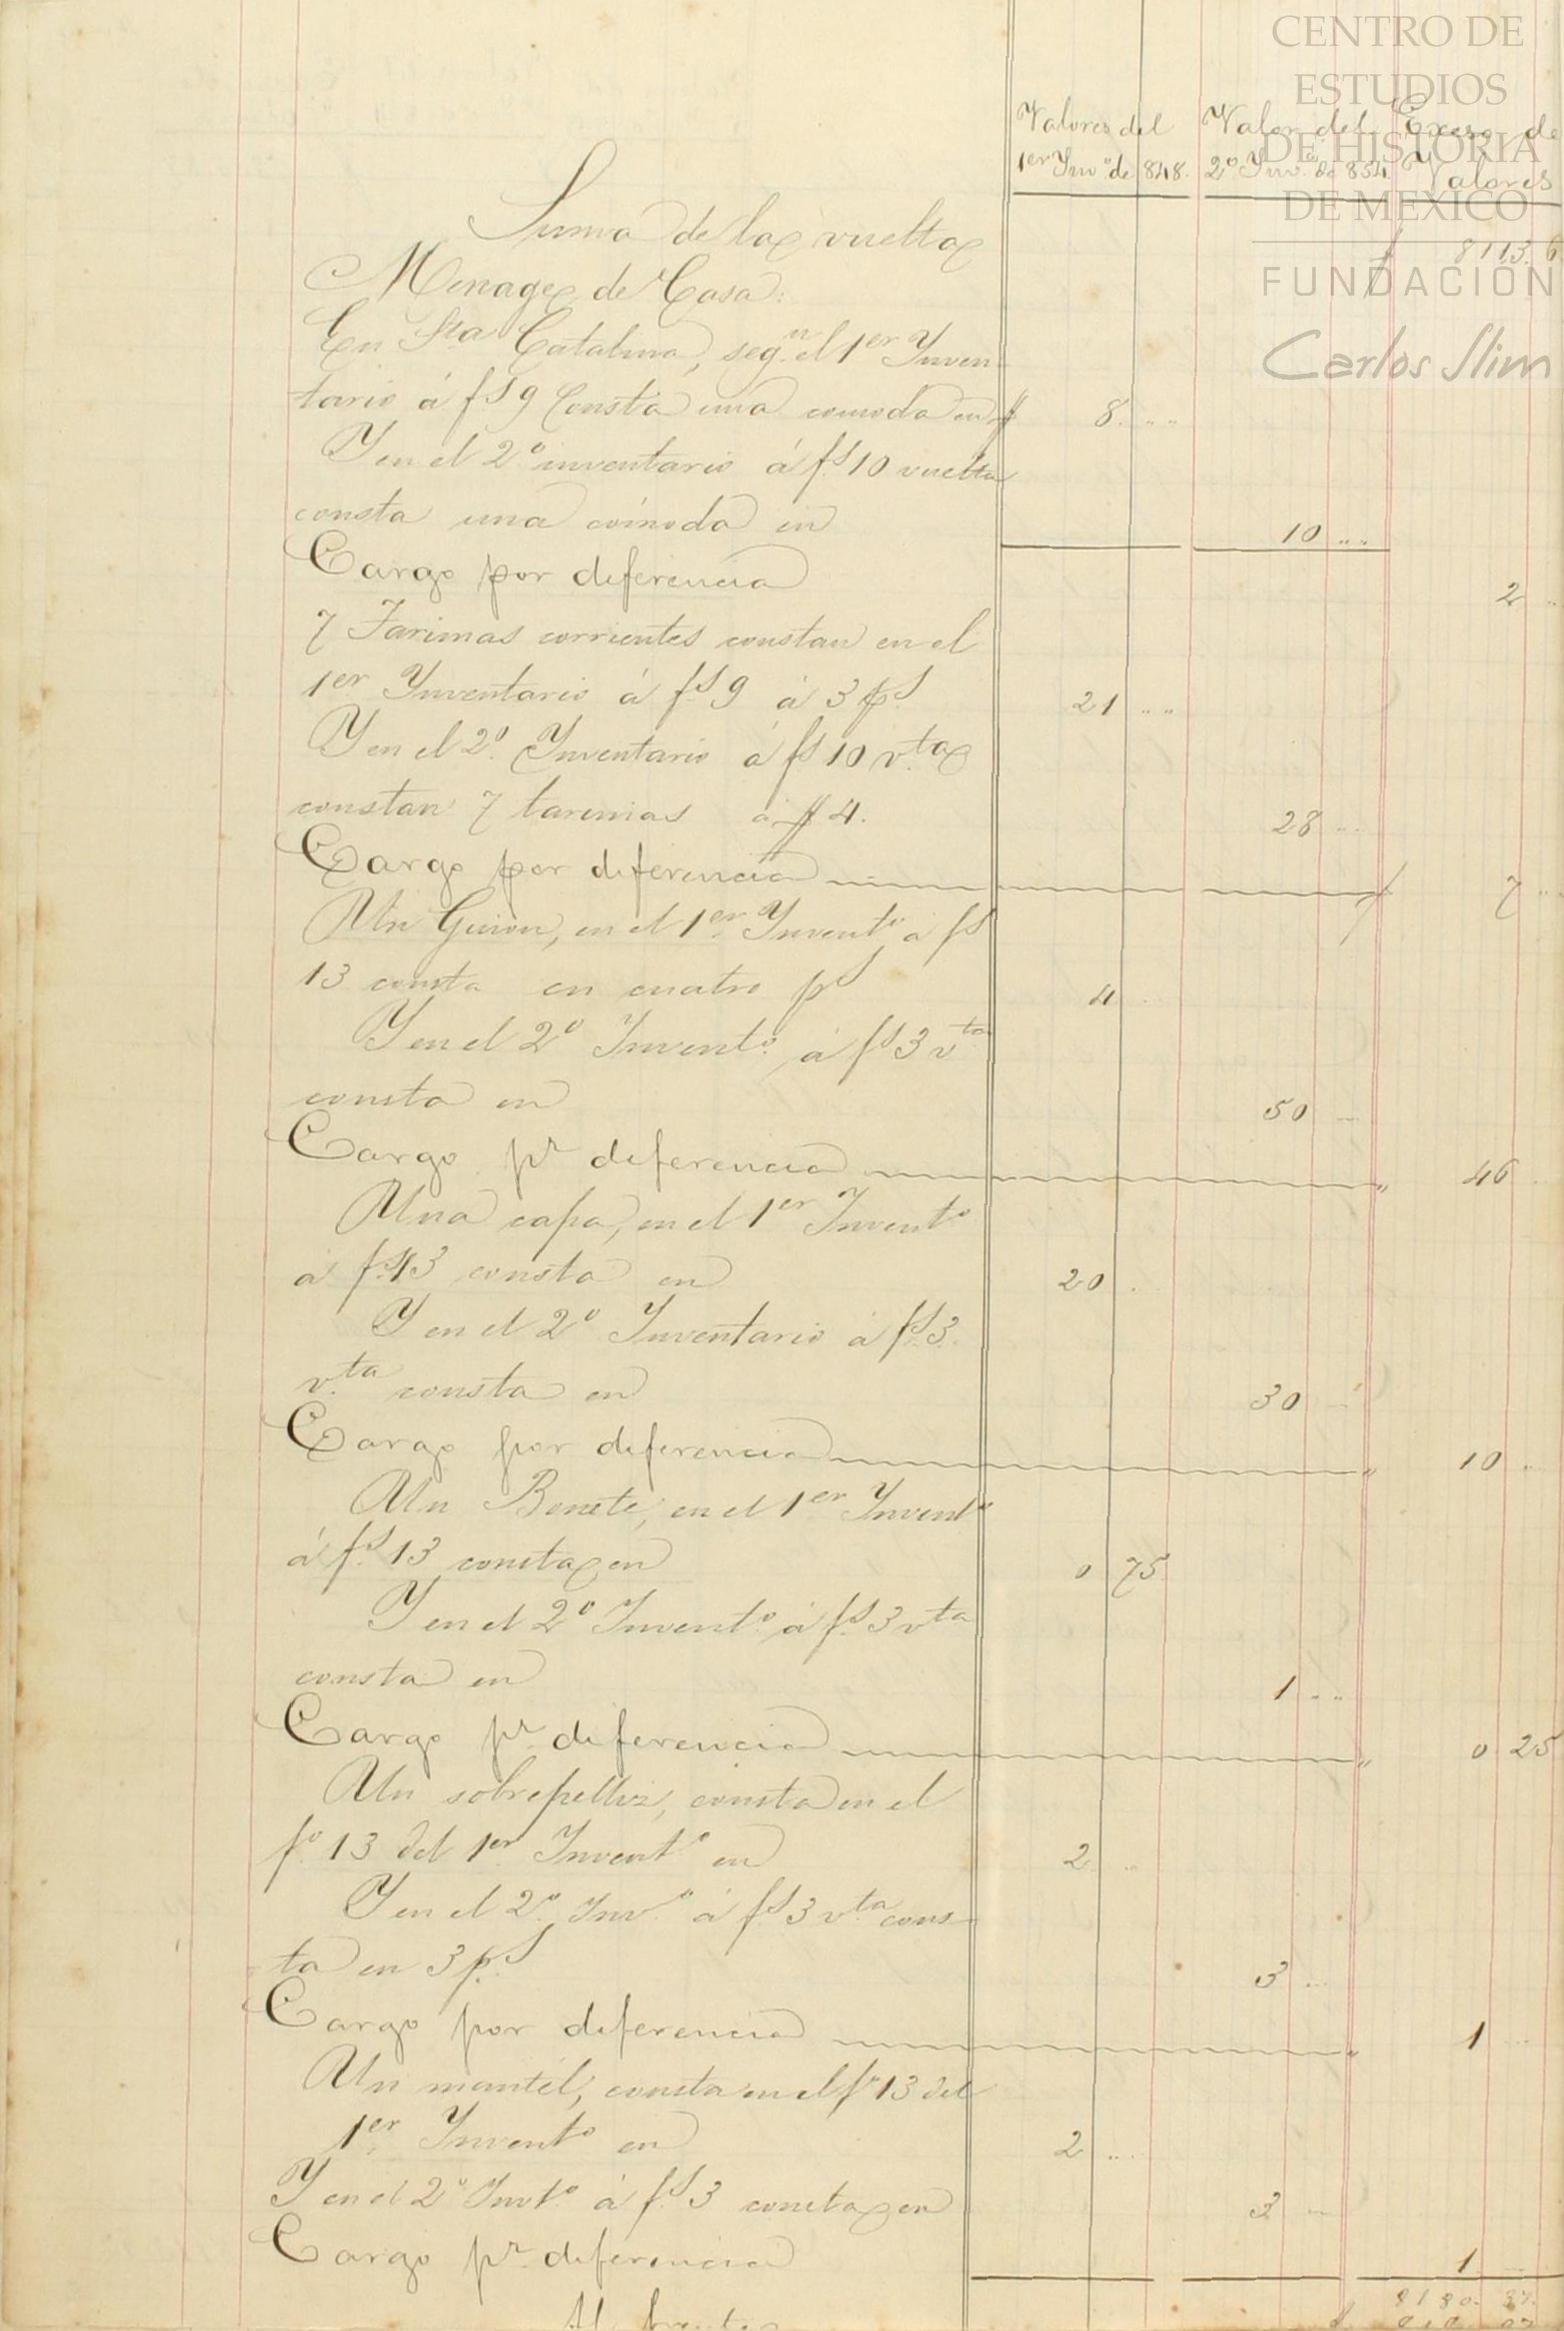 CENTRO DE
ESTUDIOS
DE HISTORIA
DE MEXICO
FUNDACIÓN
Carlos Slim
Valores del 1er Ynvo de 848. Valor del 2o Ynv. de 854 Exeso de Valores
Suma de la vuelta $ 8113. 6
Menage de Casa.
En Sta Catalina, segn el 1er Ynven-
tario á fs 9 Consta una comoda en $ 8. ....
Y en el 2o inventario á fs 10 vuelta
consta una cómoda en 10 ....
Cargo por diferencia 2 ..
7 Tarimas corrientes constan en el
1er Ynventario á fs 9 á 3 ps 21 ....
Y en el 2o. Ynventario á fs 10 vta
constan 7 tarimas á $ 4. 28 ...
Cargo por diferencia 7 ...
Un Guion, en el 1er Ynvento á fs
13 consta en cuatro ps 4
Y en el 2o Ynvento á fs 3 vta
consta en 50 ...
Cargo pr diferencia " 46
Una capa, en el 1er Ynvento
á fs 13 consta en 20 .
Y en el 2o Ynventario á fs 3
vta consta en 30 ..
Cargo por diferencia " 10 ..
Un Bonete, en el 1er Ynvento
á fs 13 consta en 0 75
Y en el 2o Ynvento á fs 3 vta
consta en 1 ....
Cargo pr diferencia " 0 25
Un sobrepelliz, consta en el
fo 13 del 1er Ynvento en 2 ..
Y en el 2o Ynvo á fs 3 vta cons-
ta en 3 ps 3 ...
Cargo por diferencia " 1 ...
Un mantel, consta en el fo 13 del
1er Ynvento en 2 ....
Y en el 2o Ynvto á fs 3 consta en 3 ...
Cargo pr diferencia 1 ...
8180. 37.
Al frente